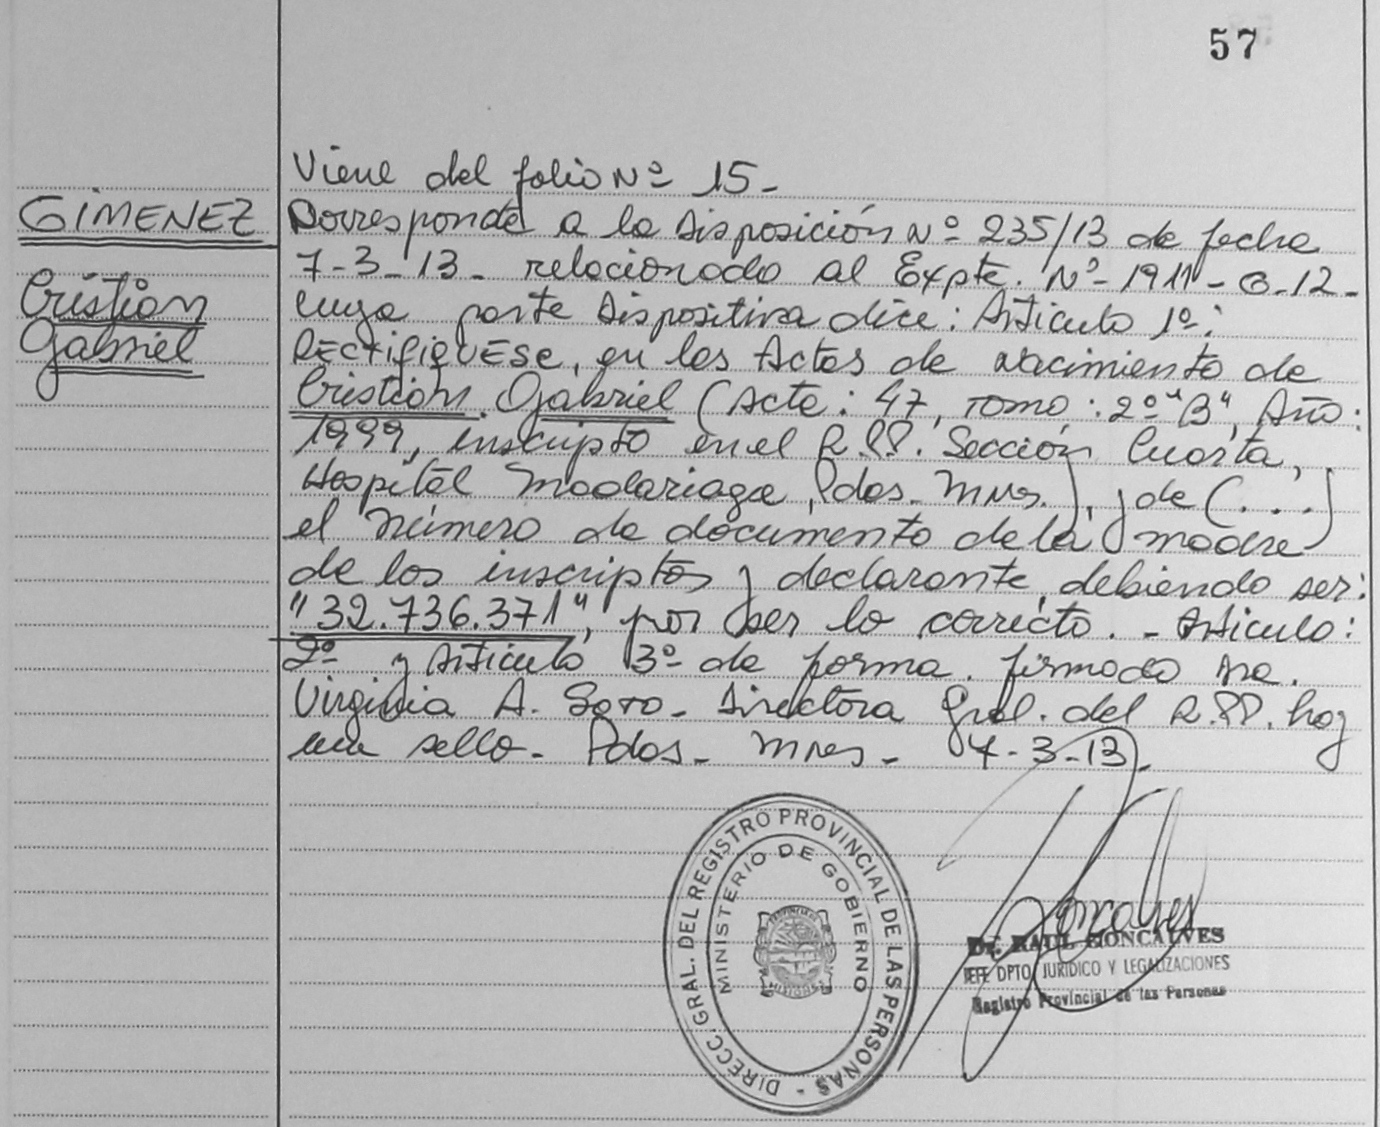 57
Viene del folio Nº 15-
GIMENEZ
Cristian
Gabriel
Corresponde a la Disposición Nº 235/13 de fecha
7-3-13- relacionado al Expte. Nº 1911-G-12-
cuya parte Dispositiva dice: Artículo 1º:
RECTIFIQUESE, en las Actas de nacimiento de
Cristian Gabriel (Acta: 47, Tomo: 2º "B", Año:
1999, inscripto en el R.P.P. Sección Cuarta,
Hospital Madariaga, Pdas. Mnes.), y de (...)
el número de documento de la madre
de los inscriptos y declarante, debiendo ser:
"32.736.371", por ser lo correcto. - Artículo:
2º y Artículo 3º de forma. firmado Dra.
Virginia A. Soro- Directora Gral. del R.P.P. hay
un sello- Pdas- Mnes- 4-3-13.
DIRECC. GRAL. DEL REGISTRO PROVINCIAL DE LAS PERSONAS -
MINISTERIO DE GOBIERNO
PROVINCIA DE
MISIONES
Goncalves
Dr. RAUL GONCALVES
JEFE DPTO. JURIDICO Y LEGALIZACIONES
Registro Provincial de las Personas